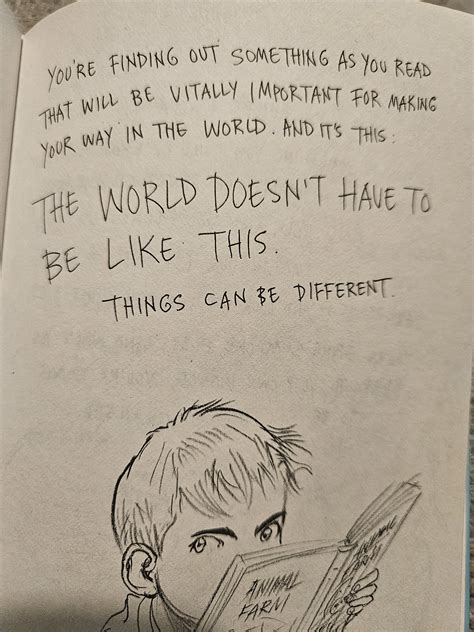 YOU'RE FINDING OUT SOMETHING AS YOU READ
THAT WILL BE VITALLY IMPORTANT FOR MAKING
YOUR WAY IN THE WORLD. AND IT'S THIS:
THE WORLD DOESN'T HAVE TO
BE LIKE THIS.
THINGS CAN BE DIFFERENT.
ANIMAL
FARM